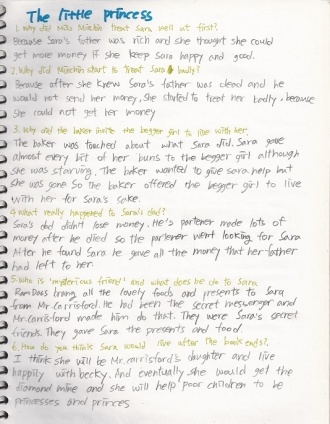 The little princess
1. Why did Miss Minchin treat Sara well at first?
Because Sara's father was rich and she thought she could
get more money if she keep Sara happy and good.
2. Why did Minchin start to treat Sara badly?
Because after she knew Sara's father was dead and he
would not send her money, she started to treat her badly, because
she could not get her money
3. Why did the baker invite the begger girl to live with her
The baker was touched about what Sara did. Sara gave
almost every bit of her buns to the begger girl although
she was starving. The baker wanted to give sara help but
she was gone So the baker offered the begger girl to live
with her for Sara's sake.
4. What really happened to Sara's dad?
Sara's dad didn't lose money. He's partener made lots of
morey after he died so the partener went looking for Sara
After he found Sara he gave all the money that her father
had left to her.
5. Who is 'mysterious friend' and what does he do to Sara
RamDass brang all the lovely foods and presents to Sara
from Mr.Carrisford. He had been the secret messenger and
Mr.Carrisford made him do that. They were Sara's secret
friends. They gave Sara the presents and food.
6. How do you think Sara would live after the book ends?
I think she will be Mr.carrisford's daughter and live
happily with becky. And eventually she would get the
diamond mine and she will help poor children to be
princesses and princes